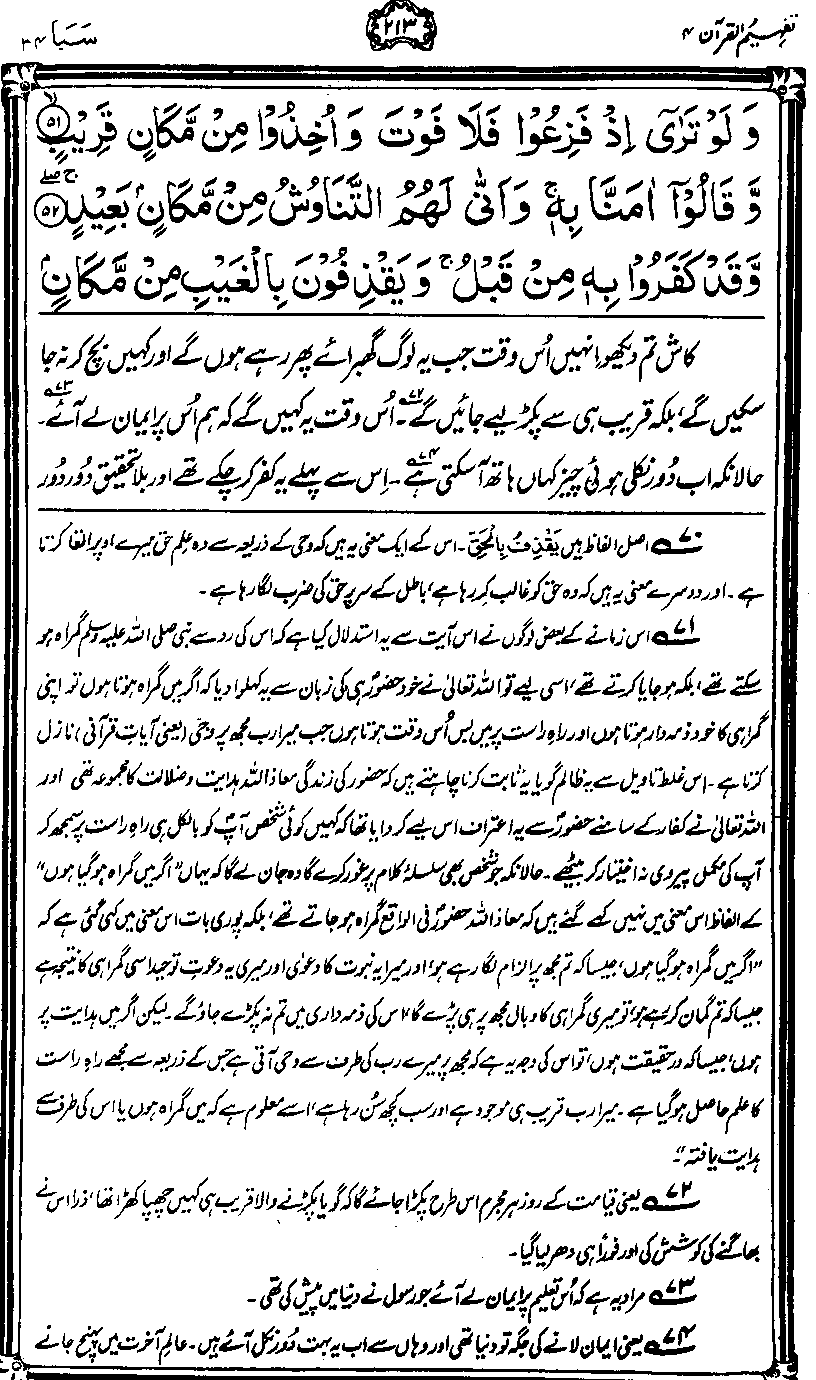 تفہیم القرآن ۴
۲۱۳
سَبَا ۳۴
وَلَوْ تَرٰٓى اِذْ فَزِعُوْا فَلَا فَوْتَ وَاُخِذُوْا مِنْ مَّكَانٍ قَرِيْبٍ ﴿۵۱﴾
وَّقَالُوْٓا اٰمَنَّا بِهٖ ۚ وَاَنّٰى لَهُمُ التَّنَاوُشُ مِنْ مَّكَانٍۢ بَعِيْدٍ ﴿۵۲﴾
وَّقَدْ كَفَرُوْا بِهٖ مِنْ قَبْلُ ۚ وَيَقْذِفُوْنَ بِالْغَيْبِ مِنْ مَّكَانٍۢ
کاش تم دیکھو اِنہیں اُس وقت جب یہ لوگ گھبرائے پھر رہے ہوں گے اور کہیں بچ کر نہ جا
سکیں گے، بلکہ قریب ہی سے پکڑ لیے جائیں گے۷۲۔ اُس وقت یہ کہیں گے کہ ہم اُس پر ایمان لے آئے۷۳۔
حالانکہ اب دُور نکلی ہوئی چیز کہاں ہاتھ آسکتی ہے۷۴۔ اِس سے پہلے یہ کفر کر چکے تھے اور بلا تحقیق دُور دُور
۷۰ اصل الفاظ ہیں یَقْذِفُ بِالْحَقِّ۔ اس کے ایک معنی یہ ہیں کہ وحی کے ذریعہ سے وہ علمِ حق میرے اوپر القا کرتا
ہے۔ اور دوسرے معنی یہ ہیں کہ وہ حق کو غالب کر رہا ہے، باطل کے سر پر حق کی ضرب لگا رہا ہے۔
۷۱ اس زمانے کے بعض لوگوں نے اس آیت سے یہ استدلال کیا ہے کہ اس کی رو سے نبی صلی اللہ علیہ وسلم گمراہ ہو
سکتے تھے، بلکہ ہو جایا کرتے تھے، اسی لیے تو اللہ تعالیٰ نے خود حضورؐ ہی کی زبان سے یہ کہلوا دیا کہ اگر میں گمراہ ہوتا ہوں تو اپنی
گمراہی کا خود ذمہ دار ہوتا ہوں اور راہِ راست پر میں بس اُس وقت ہوتا ہوں جب میرا رب مجھ پر وحی (یعنی آیاتِ قرآنی) نازل
کرتا ہے۔ اس غلط تاویل سے یہ ظالم گویا یہ ثابت کرنا چاہتے ہیں کہ حضورؐ کی زندگی معاذ اللہ ہدایت و ضلالت کا مجموعہ تھی اور
اللہ تعالیٰ نے کفار کے سامنے حضورؐ سے یہ اعتراف اس لیے کروایا تھا کہ کہیں کوئی شخص آپؐ کو بالکل ہی راہِ راست پر سمجھ کر
آپ کی مکمل پیروی نہ اختیار کر بیٹھے۔ حالانکہ جو شخص بھی سلسلۂ کلام پر غور کرے گا وہ جان لے گا کہ یہاں "اگر میں گمراہ ہو گیا ہوں"
کے الفاظ اس معنی میں نہیں کہے گئے ہیں کہ معاذ اللہ حضورؐ فی الواقع گمراہ ہو جاتے تھے، بلکہ پوری بات اس معنی میں کہی گئی ہے کہ
"اگر میں گمراہ ہو گیا ہوں، جیسا کہ تم مجھ پر الزام لگا رہے ہو، اور میرا یہ نبوت کا دعویٰ اور میری یہ دعوتِ توحید اسی گمراہی کا نتیجہ ہے
جیسا کہ تم گمان کر رہے ہو، تو میری گمراہی کا وبال مجھ پر ہی پڑے گا، اس کی ذمہ داری میں تم نہ پکڑے جاؤ گے۔ لیکن اگر میں ہدایت پر
ہوں، جیسا کہ درحقیقت ہوں، تو اس کی وجہ یہ ہے کہ مجھ پر میرے رب کی طرف سے وحی آتی ہے جس کے ذریعہ سے مجھے راہِ راست
کا علم حاصل ہو گیا ہے۔ میرا رب قریب ہی موجود ہے اور سب کچھ سُن رہا ہے، اسے معلوم ہے کہ میں گمراہ ہوں یا اس کی طرف سے
ہدایت یافتہ"۔
۷۲ یعنی قیامت کے روز ہر مجرم اس طرح پکڑا جائے گا کہ گویا پکڑنے والا قریب ہی کہیں چھپا کھڑا تھا، ذرا اس نے
بھاگنے کی کوشش کی اور فوراً ہی دھر لیا گیا۔
۷۳ مراد یہ ہے کہ اُس تعلیم پر ایمان لے آئے جو رسول نے دنیا میں پیش کی تھی۔
۷۴ یعنی ایمان لانے کی جگہ تو دنیا تھی اور وہاں سے اب یہ بہت دُور نکل آئے ہیں۔ عالمِ آخرت میں پہنچ جانے